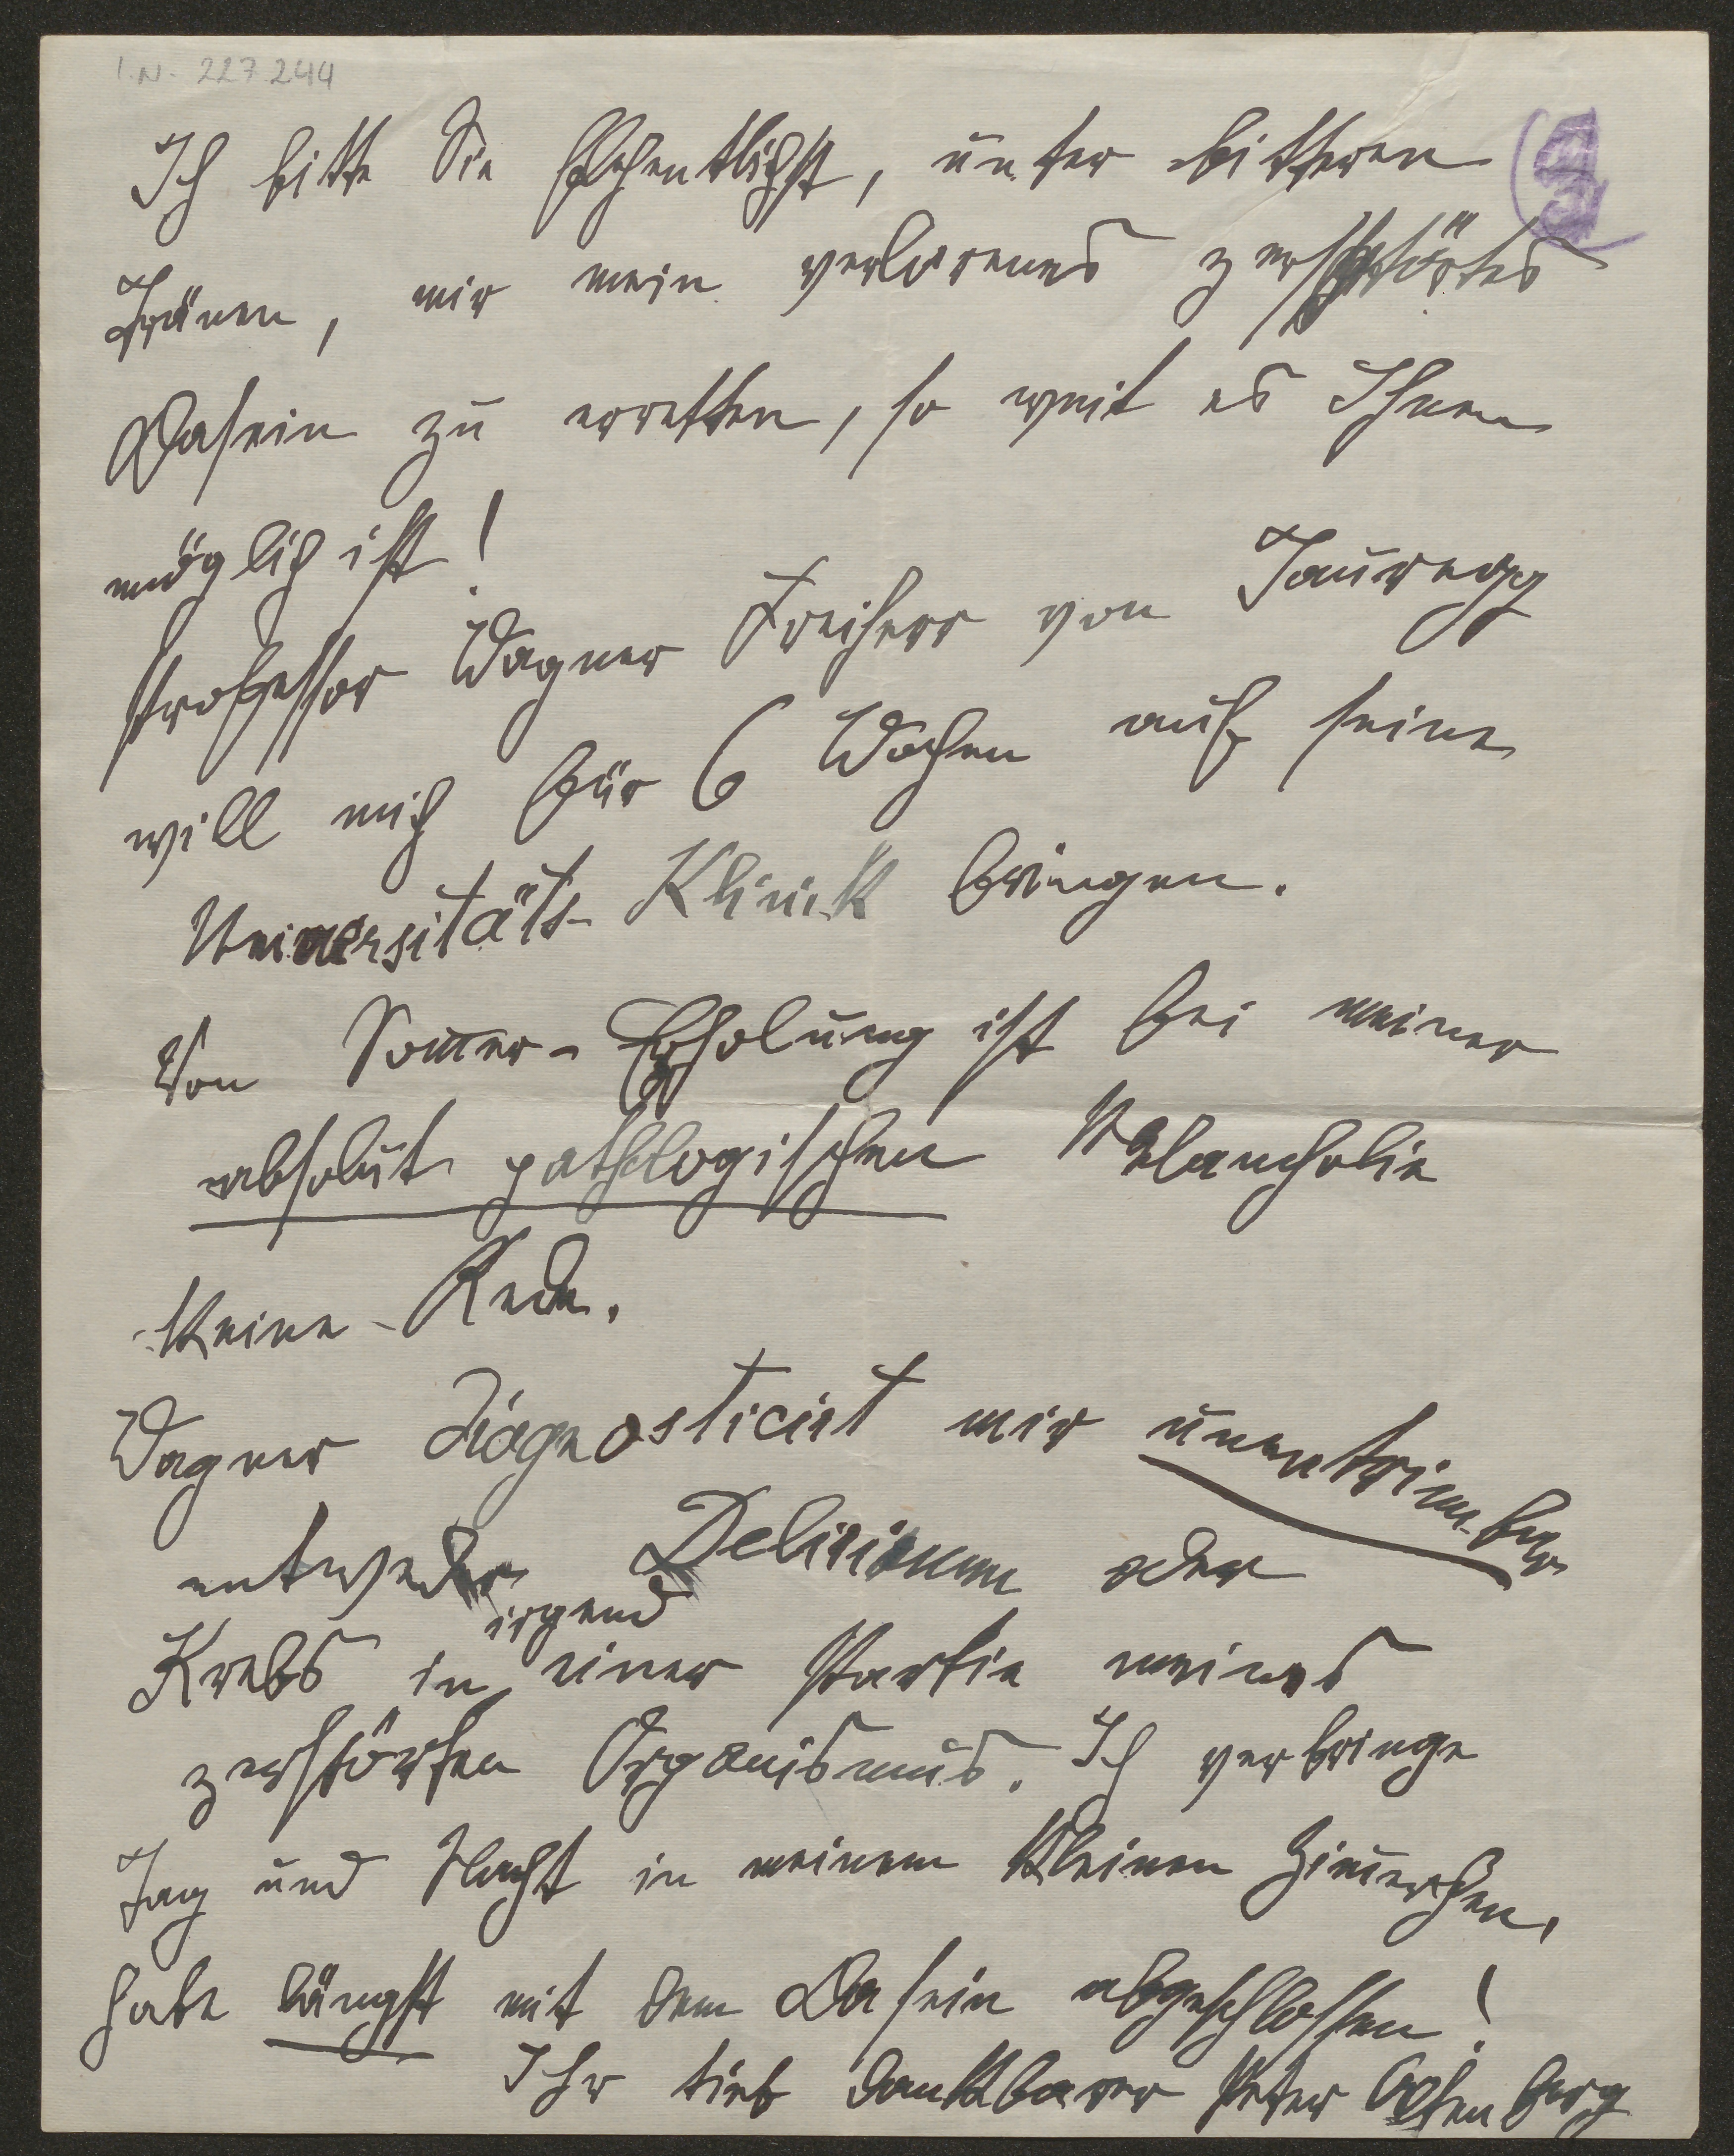 I.N. 227.244
Ich bitte Sie flehentlichst, unter bitteren
Tränen, mir mein verlorenes zerstörtes
Dasein zu erretten, so weit es Ihnen
möglich ist!
Professor Wagner Freiherr von Jauregg
will mich für 6 Wochen auf seine
Universitäts-Klinik bringen.
Von Som̄er-Erholung ist bei meiner
absolut pathologischen Melancholie
keine Rede.
Wagner diagnosticirt mir unentrinnbar
entweder Delirium oder
irgend
Krebs in einer Partie meines
zerstörten Organismus. Ich verbringe
Tag und Nacht in meinem kleinen Zim̄erchen,
habe längst mit dem Dasein abgeschlossen!
Ihr tief dankbarer Peter Altenberg